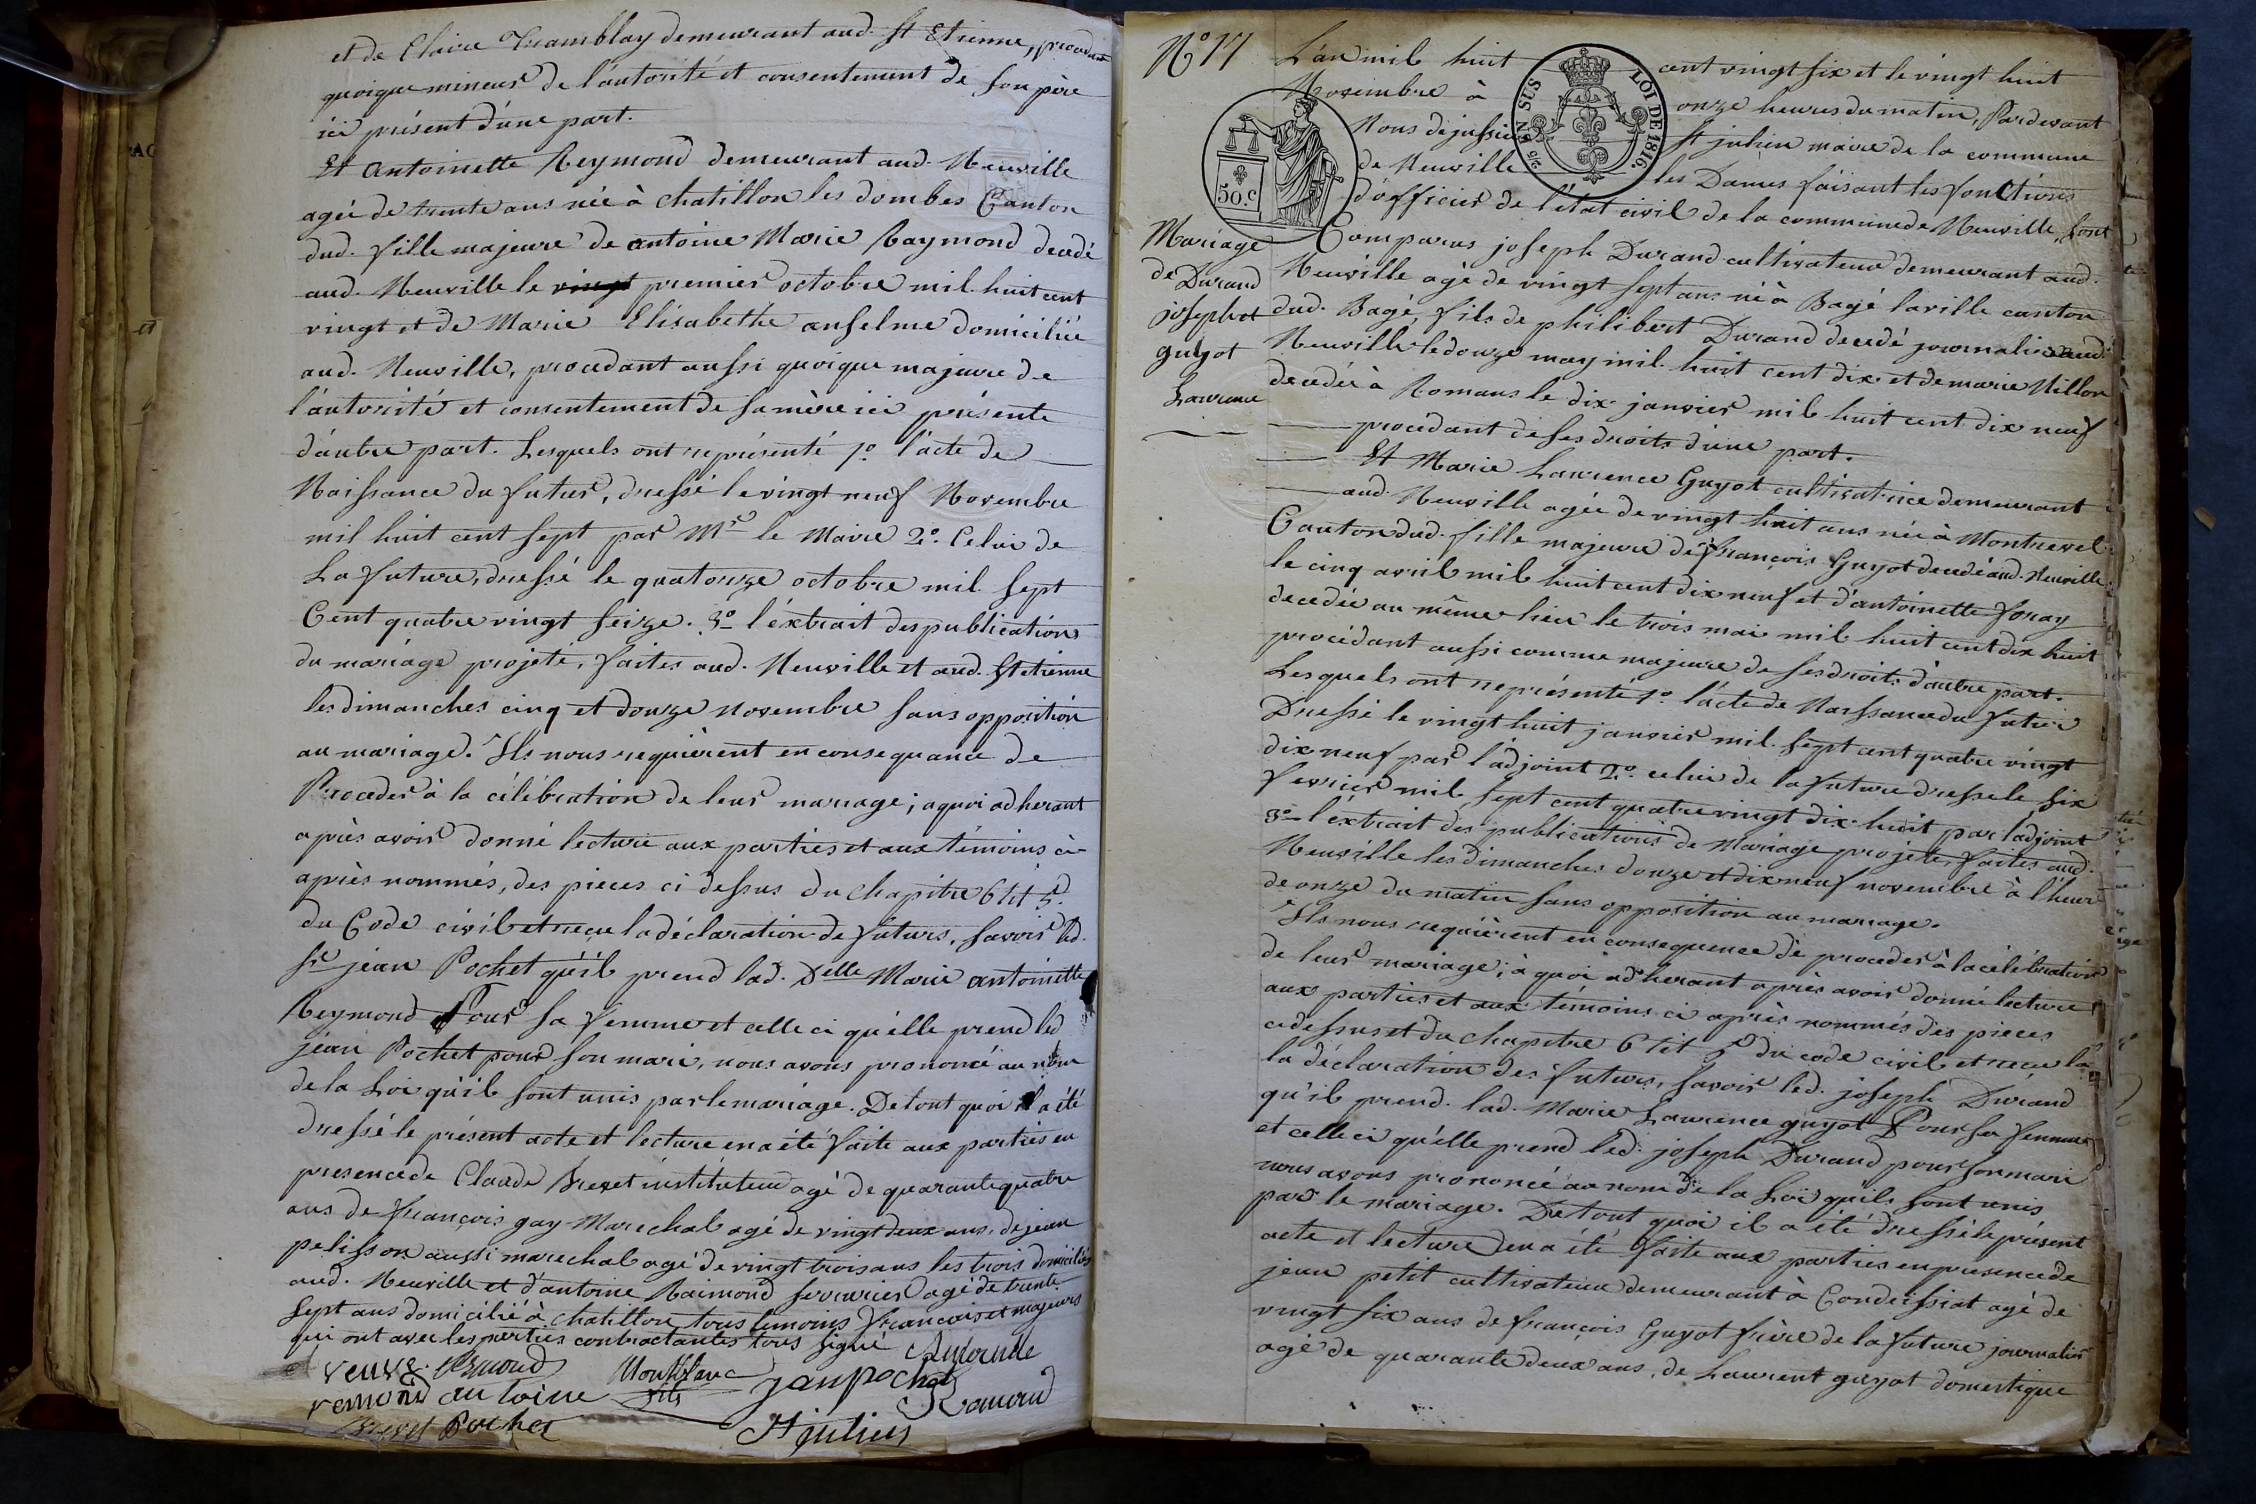 et de Claire Tramblay demeurant aud. St Etienne, procedant
quoique mineur de l'autorité et consentement de son père
ici présent d'une part.
Et Antoinette Reymond demeurant aud. Neuville
agée de trente ans née à Chatillon les dombes Canton
dud. fille majeure de antoine Marie Raymond decedé
aud. Neuville le vingt premier octobre mil huit cent
vingt et de Marie Elisabethe anselme domiciliée
aud. Neuville, procedant aussi quoique majeure de
l'autorité et consentement de sa mère ici présente
d'autre part. Lesquels ont représenté 1º l'acte de
Naissance du futur, dressé le vingt neuf Novembre
mil huit cent sept par Mr le Maire 2º. Celui de
La future, dressé le quatorze octobre mil sept
Cent quatre vingt seize. 3º l'extrait des publications
du mariage projeté, faites aud. Neuville et aud. St etienne
les dimanches cinq et douze novembre sans opposition
au mariage. Ils nous requièrent en consequance de
Proceder à la célébration de leur mariage; aquoi adherant
après avoir donné lecture aux parties et aux témoins ci
après nommés, des pieces ci dessus du Chapitre 6 tit 5.
du Code civil et recu la déclaration de futurs, savoir led.
Sr jean Pochet qu'il prend lad. Delle Marie antoinette
Reymond Pour sa femme et celle ci qu'elle prend led
jean Pochet pour son mari, nous avons prononcé au nom
de la Loi qu'il sont unis par le mariage. De tout quoi il a été
dressé le présent acte et lecture en a été faite aux parties en
presence de Claude instituteur agé de quarante quatre
ans de françois gay Marechal agé de vingt deux ans, de jean
pelisson aussi marechal agé de vingt trois ans les trois domiciliés
aud. Neuville et d'antoine Raimond serrurier agé de trente
sept ans domicilié à chatillon tous temoins francais et majeurs
qui ont avec les parties contractantes tous signé
veuve
remond antoine Montblanc fils jan pochet
Pochet St julien
Nº 17
L'an mil huit cent vingt six et le vingt huit
Novembre à onze heures du matin, Pardevant
Nous dejussieu St julien maire de la commune
de Neuville les Dames faisant les fonctions
d'officier de l'état civil de la commune de Neuville, sont
EN SUS
LOI DE 1816.
50.c
Mariage
de Durand
joseph et
guyot
Laurence
Comparus joseph Durand cultivateur demeurant aud.
Neuville agé de vingt sept ans né à Bagé la ville canton
dud. Bagé, fils de philibert Durand decedé journalier aud.
Neuville le douze may mil huit cent dix et de marie Nillon
decedée à Romans le dix janvier mil huit cent dix neuf
procedant de ses droits d'une part.
Et Marie Laurence Guyot cultivatrice demeurant
aud. Neuville agée de vingt huit ans née à Montrevel
Canton dud. fille majeure de françois Guyot decedé aud. Neuville
le cinq avril mil huit cent dix neuf et d'antoinette foray
decedée au même lieu le trois mai mil huit cent dix huit
procédant aussi comme majeure de ses droits d'autre part.
Lesquels ont représenté 1º l'acte de Naissance du futur
Dressé le vingt huit janvier mil sept cent quatre vingt
dix neuf par l'adjoint 2º. celui de la future dressé le six
fevrier mil sept cent quatre vingt dix huit par l'adjoint
3º l'extrait des publications de Mariage projeté, faites aud.
Neuville les dimanches douze et dix neuf novembre à l'heure
de onze du matin sans opposition au mariage.
Ils nous requièrent en consequence de proceder à la célébration
de leur mariage; à quoi adherant après avoir donné lecture
aux parties et aux témoins ci après nommés des pieces
ci dessus et du chapitre 6 tit 5 du code civil et recu la
la déclaration des futurs, savoir led. joseph Durand
qu'il prend lad. Marie Laurence guyot Pour sa femme
et celle ci qu'elle prend led. joseph Durand pour son mari
nous avons prononcé au nom de la Loi qu'ils sont unis
par le mariage. De tout quoi il a été dressé le présent
acte et lecture en a été faite aux parties en presence de
jean petit cultivateur demeurant à Condeissiat agé de
vingt six ans de françois Guyot frère de la future journalier
agé de quarante deux ans, de Laurent guyot domestique